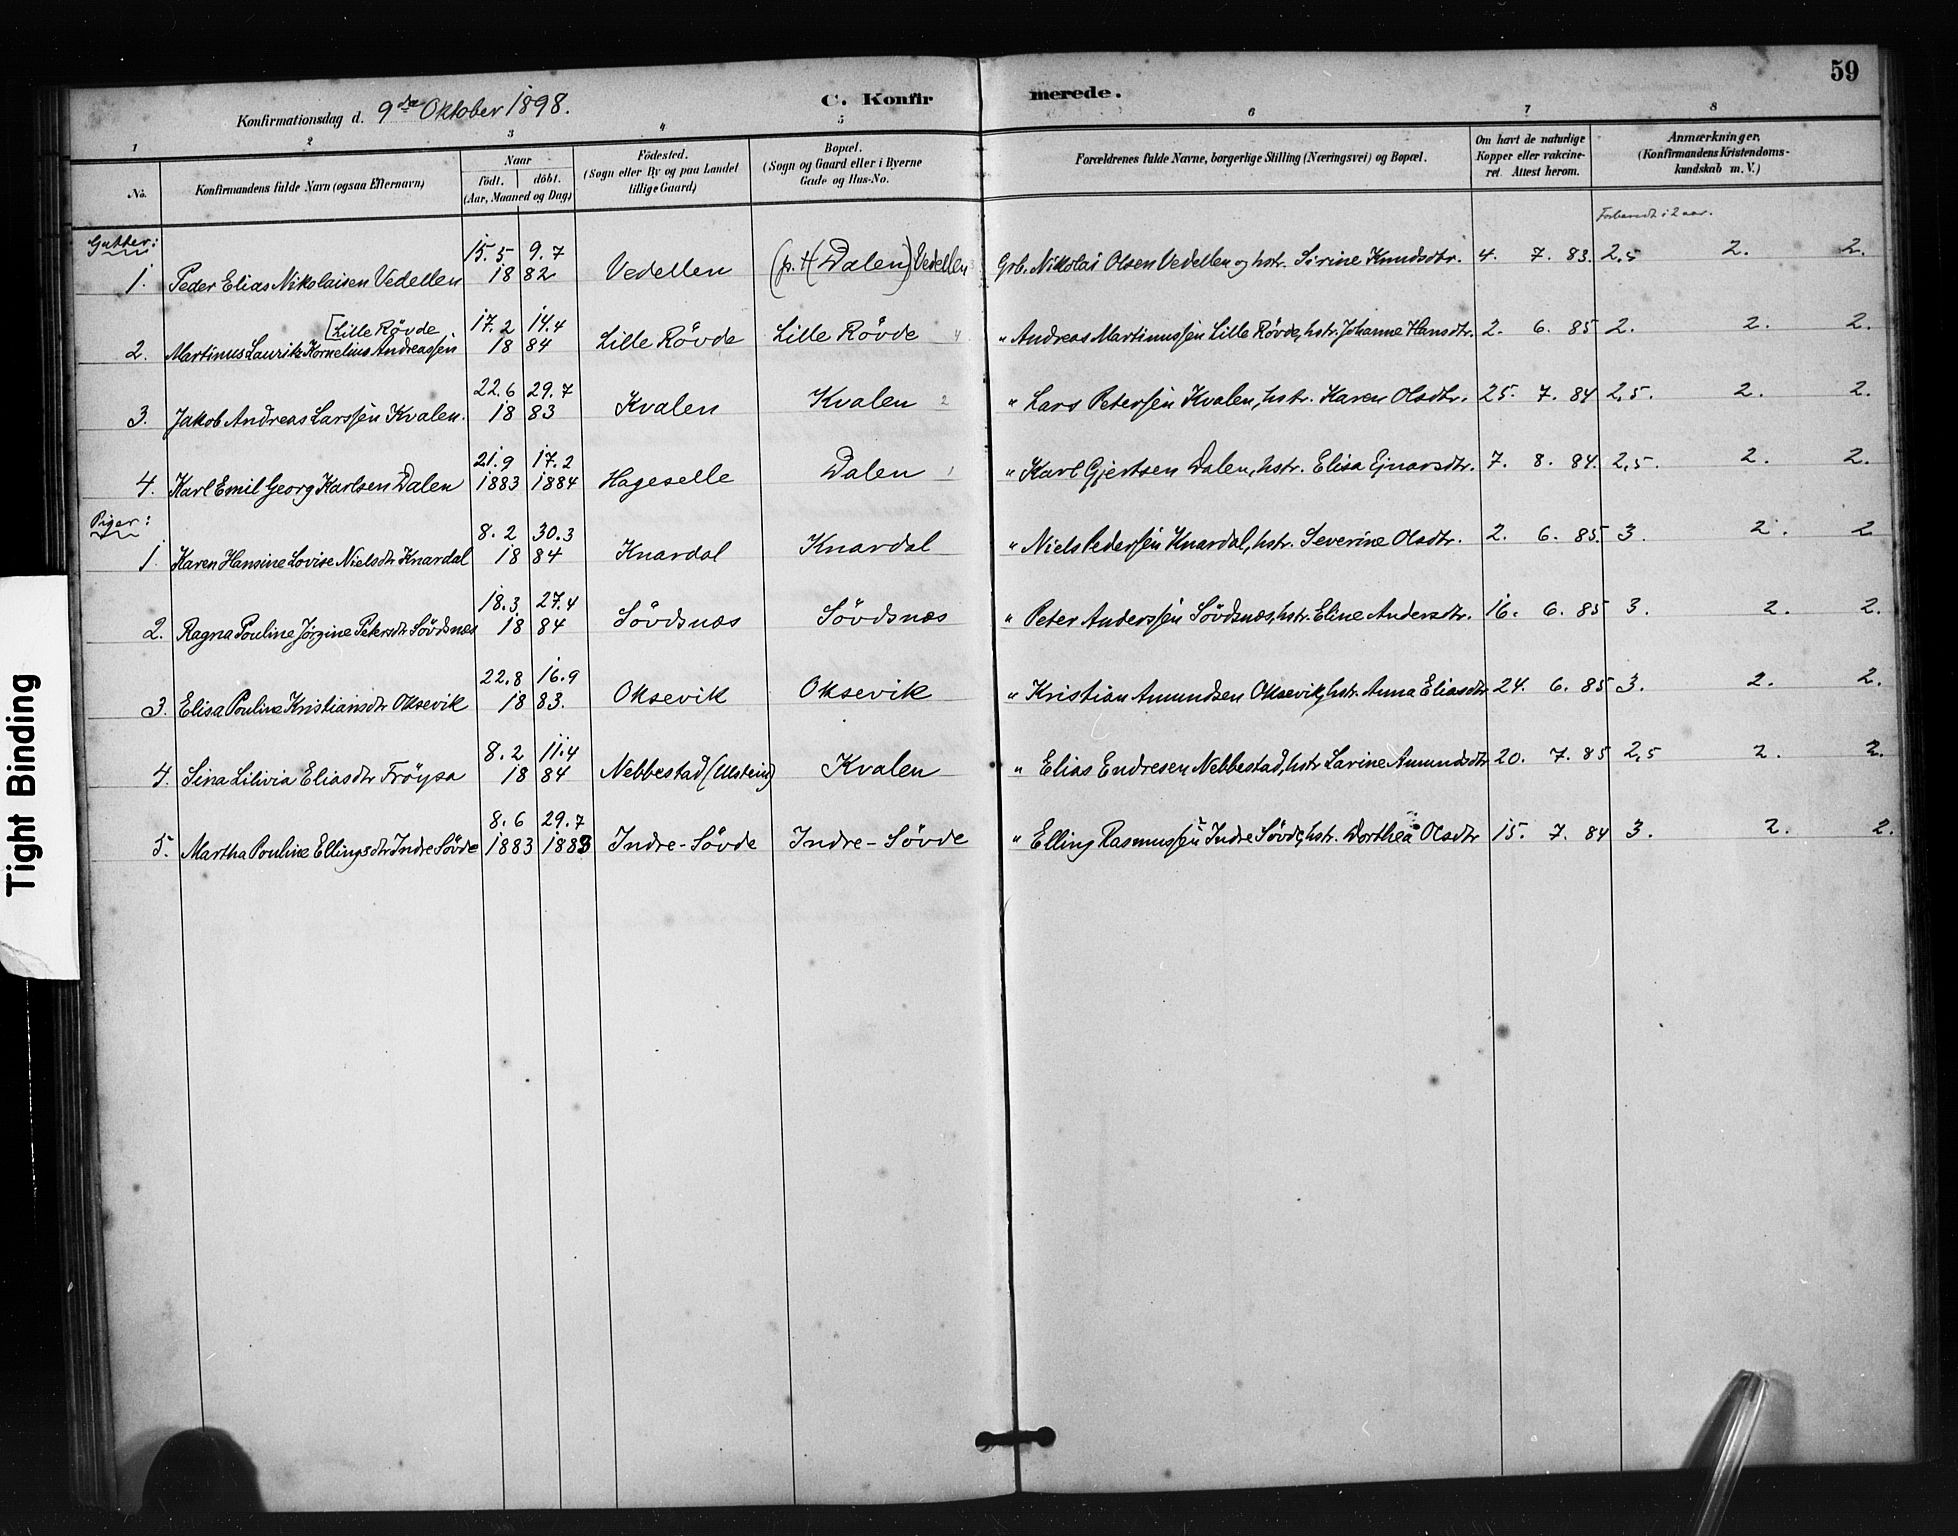 59
Konfirmationsdag d. 9de Oktober 1898. C. Konfir merede.
1 2 3 4 5 6 7 8
No. Konfirmandens fulde Navn (ogsaa Efternavn) Naar födt. döbt. (Aar, Maaned og Dag) Födested. (Sogn eller By og paa Landet tillige Gaard) Bopæl. (Sogn og Gaard eller i Byerne Gade og Hus-No. Forældrenes fulde Navne, borgerlige Stilling (Næringsvei) og Bopæl. Om havt de naturlige Kopper eller vakcineret. Attest herom. Anmærkninger. (Konfirmandens Kristendomskundskab m. V.)
Gutter: 
1. Peder Elias Nikolaisen Vedellen 15.5 9.7 1882 Vedellen (p.t. Dalen) Vedellen Grb. Nikolai Olsen Vedellen og hstr. Sirine Knudsdtr. 4. 7. 83. 2,5 2. 2.
2. Martinus Laurits Kornelius Andreassen [Lille Rövde 17.2 14.4 1884 Lille Rövde Lille Rövde 4 " Andreas Martinussen Lille Rövde, hstr. Johanne Hansdtr. 2. 6. 85 2. 2. 2.
3. Jakob Andreas Larssen Kvalen. 22.6 29.7 1883 Kvalen Kvalen 2 " Lars Petersen Kvalen, hstr. Karen Olsdtr. 25. 7. 84 2,5. 2. 2.
4. Karl Emil Georg Karlsen Dalen 21.9 1883 17.2 1884 Hageselle Dalen 1 " Karl Gjertsen Dalen, hstr. Elisa Ejnarsdtr. 7. 8. 84. 2,5. 2. 2.
Piger:
1. Karen Hansine Lovise Nielsdtr Knardal 8.2 30.3 1884 Knardal Knardal " Niels Pedersen Knardal, hstr. Severine Olsdtr. 2. 6. 85. 3. 2. 2
2. Ragna Pouline Jörgine Petersdtr Sövdsnæs 18.3. 27.4 1884 Sövdsnæs Sövdsnæs " Peter Anderssen Sövdsnæs, hstr. Eline Andersdtr. 16. 6. 85 3. 2. 2.
3. Elisa Pouline Kristiansdtr Oksevik 22.8 16.9 1883. Oksevik Oksevik " Kristian Amundsen Oksevik, hstr. Anna Eliasdtr 24. 6. 85 3. 2. 2.
4. Sina Lilivia Eliasdtr Fröysa 8.2 11.4 1884 Nebbestad (Ulstein) Kvalen " Elias Endresen Nebbestad, hstr Lavine Amundsdtr 20. 7. 85 2,5 2. 2.
5. Martha Pouline Ellingsdtr Indre Sövde 8.6 1883 29.7 1883 Indre-Sövde Indre-Sövde " Elling Rasmussen Indre Sövde, hstr. Dorthea Olsdtr 15. 7. 84 3. 2. 2.
Tight Binding